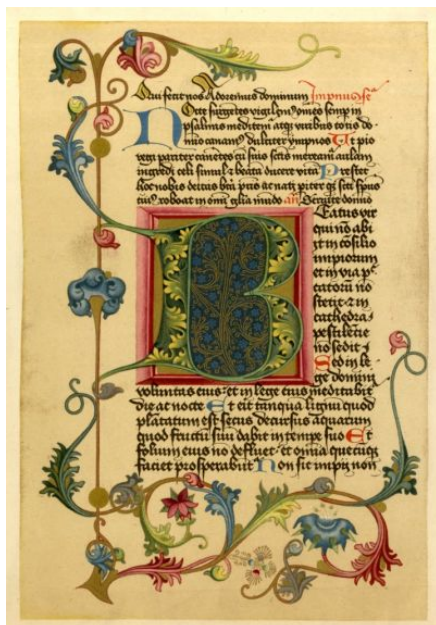 Qui fecit nos Adoremus dominum Impnus
Nocte surgētes vigilem⁹ om̄es semp in
psalmis meditem̄ atqʒ viribus totis do-
mino canam⁹ dulciter ymnos Ut pio
regi pariter canētes cū suis sctis mereamᷣ aulam
ingredi celi simul ⁊ beatā ducere vitā Prestet
hoc nobis deitas br̄a prīs ac nati piter qʒ sc̄i spūs
cui⁹ reboat in om̄i glīa mūdo an̄ Servite domīo
Beatus vir
qui nō abi
it in cōsilio
impiorum
et in via pc̄
catorū nō
stetit ⁊ in
cathedra
pestilētie
nō sedit ⁊
Sed in le
ge domini
voluntas eius et in lege eius meditabit᷑
die ac nocte Et erit tanquā lignū quod
plātatum est secus decursus aquarum
quod fructū suū dabit in tempe suo Et
folium eius nō defluet et omīa quecūqʒ
faciet prosperabūt᷑ Non sic impij non